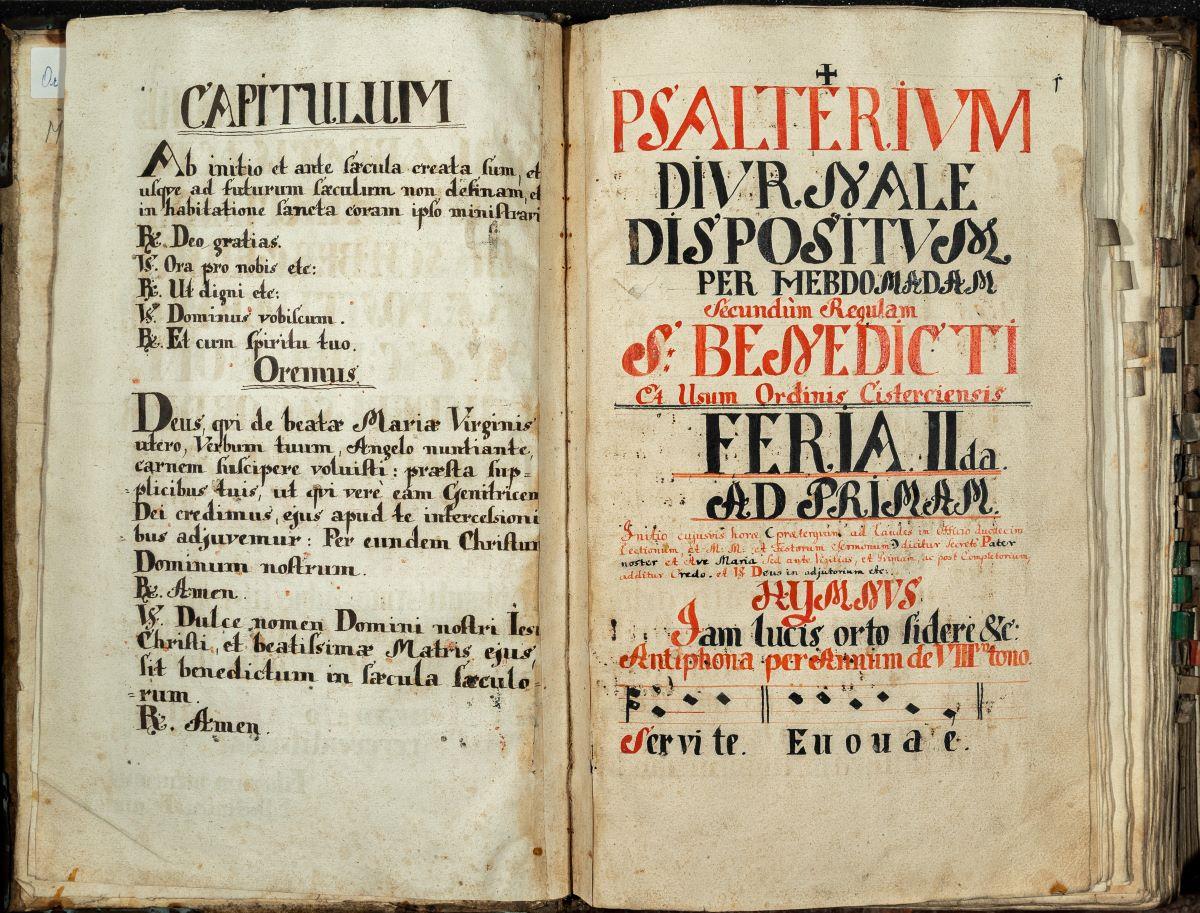 CAPITULUM
Ab initio et ante sæcula creata sum, et
usqve ad futurum sæculum non desinam, et
in habitatione sancta coram ipso ministravi
℟. Deo gratias.
℣. Ora pro nobis etc:
℟. Ut digni etc:
℣. Dominus vobiscum.
℟. Et cum spiritu tuo.
Oremus.
Deus, qvi de beatæ Mariæ Virginis
utero, Verbum tuum, Angelo nuntiante,
carnem suscipere voluisti: præsta sup=
plicibus tuis, ut qvi verè eam Genitricem
Dei credimus, ejus apud te intercessioni
bus adjuvemur: Per eundem Christum
Dominum nostrum.
℟. Amen.
℣. Dulce nomen Domini nostri Iesu
Christi, et beatissimæ Matris ejus,
sit benedictum in sæcula sæculo=
=rum.
℟. Amen.
1
PSALTERIVM
DIVRNALE
DISPOSITVM
PER HEBDOMADAM
Secundùm Regulam
S: BENEDICTI
Ad Usum Ordinis Cisterciensis
FERIA IIda.
AD PRIMAM.
Initio cujusvis horæ (præterquam ad Laudes in Officio duodecim
Lectionum, et M: M: et Festorum Sermonum) dicitur secretò Pater
noster et Ave Maria Sed ante Vigilias, et Primam, ac post Completorium,
additur Credo. et ℣ Deus in adjutorium etc:
HYMNVS.
Jam lucis orto sidere &c:
Antiphona per Annum de VIIIvo tono.
Servite. Euouae.